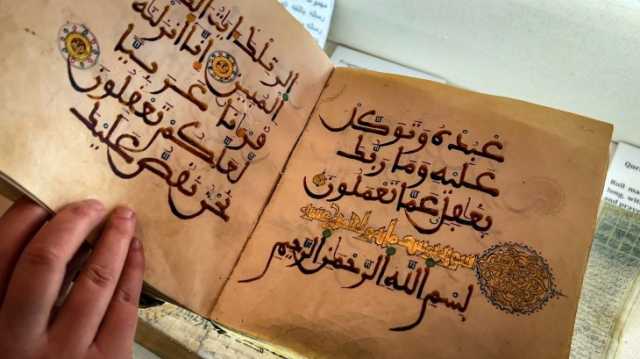 عبده وتوكل
عليه وما ربك
بغفل عما تعملون
سورة يوسف
بسم الله الرحمن الرحيم
الر تلك ايت
المبين انا انزلنه
قرءنا عربيا
لعلكم تعقلون
نحن نقص عليك
Qur